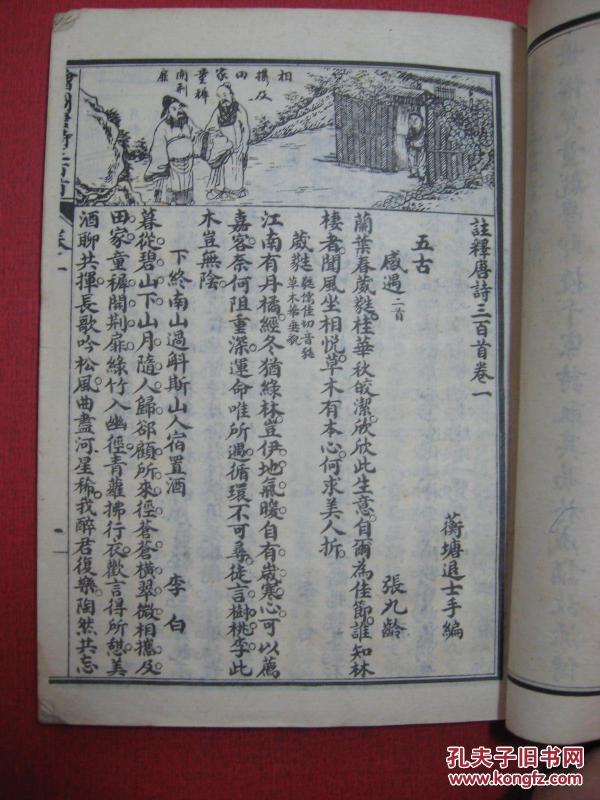 相攜及田家童稚開荊扉
註釋唐詩三百首卷一
蘅塘退士手編
五古
感遇二首 張九齡
蘭葉春葳蕤桂華秋皎潔欣欣此生意自爾為佳節誰知林
棲者聞風坐相悅草木有本心何求美人折
葳蕤 蕤儒佳切音甤草木華垂貌
江南有丹橘經冬猶綠林豈伊地氣暖自有歲寒心可以薦
嘉客奈何阻重深運命唯所遇循環不可尋徒言樹桃李此
木豈無陰
下終南山過斛斯山人宿置酒 李白
暮從碧山下山月隨人歸卻顧所來徑蒼蒼橫翠微相攜及
田家童稚開荊扉綠竹入幽徑青蘿拂行衣歡言得所憩美
酒聊共揮長歌吟松風曲盡河星稀我醉君復樂陶然共忘
繪圖唐詩三百首
卷一
一
孔夫子旧书网
www.kongfz.com